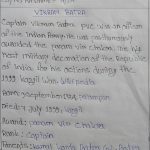 VIKRAM BATRA
Captain Vikram Batra PVC was an officer
of the Indian Army. He was posthumously
awarded the Param Vir Chakra, the
highest military decoration of the Republic
of India, for his actions during the
1999 Kargil
Born: 9 September 1974, Palampur
Died: 7 July 1999, Kargil
Award: Param Vir Chakra
Rank: Captain
Parents: Kamal Kanta Batra,